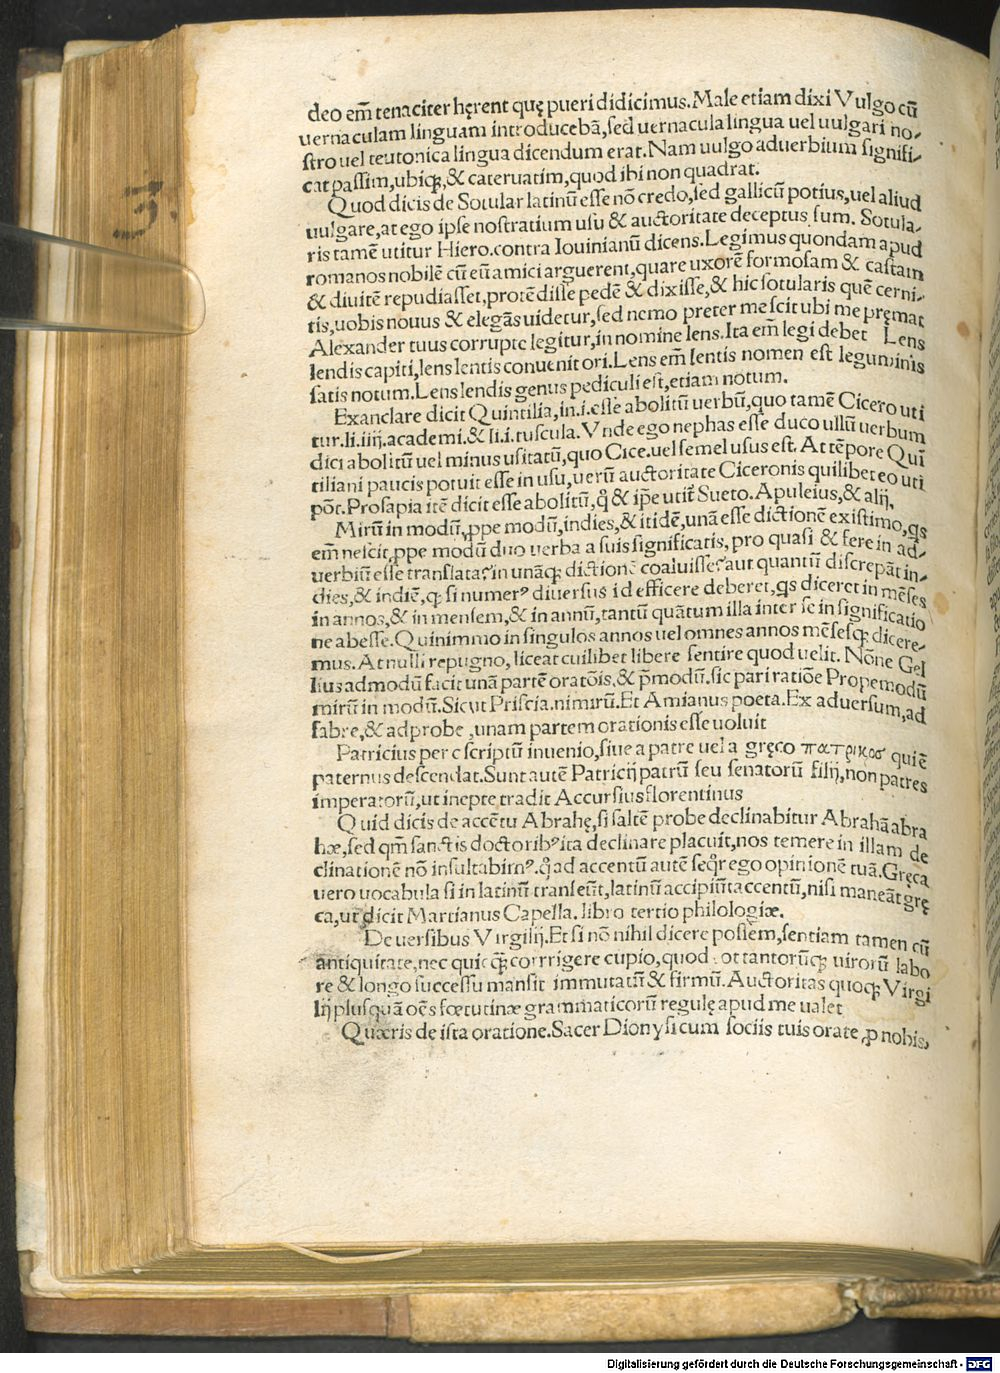 deo em̄ tenaciter hęrent quę pueri didicimus. Male etiam dixi Vulgo cū
uernaculam linguam introducebā, sed uernacula lingua uel uulgari no-
ſtro uel teutonica lingua dicendum erat. Nam uulgo aduerbium ſignifi-
cat paſſim, ubiq;, & cateruatim, quod ibi non quadrat.
Quod dicis de Sotular latinū eſſe nō credo, ſed gallicū potius, uel aliud
uulgare, at ego ipſe noſtratium uſu & auctoritate deceptus ſum. Sotula-
ris tamē utitur Hiero. contra Iouinianū dicens. Legimus quondam apud
romanos nobilē cū eū amici arguerent, quare uxorē formoſam & caſtam
& diuitē repudiaſſet, protēdiſſe pedē & dixiſſe, & hic ſotularis quē cerni-
tis, uobis nouus & elegās uidetur, ſed nemo preter me ſcit ubi me pręmat
Alexander tuus corrupte legitur, in nomine lens. Ita em̄ legi debet Lens
lendis capiti, lens lentis conuenit ori. Lens em̄ lentis nomen eſt leguminis
ſatis notum. Lens lendis genus pediculi eſt, etiam notum.
Exanclare dicit Quintilia, in .i. eſſe abolitū uerbū, quo tamē Cicero uti
tur. li. iiij. academi. & li. i. tuſcula. Vnde ego nephas eſſe duco ullū uerbum
dici abolitū uel minus uſitatū, quo Cice. uel ſemel uſus eſt. At tēpore Qui
tiliani paucis potuit eſſe in uſu, uerū auctoritate Ciceronis quilibet eo uti
põt. Proſapia itē dicit eſſe abolitū, q̊ & ip̄e utit̃ Sueto. Apuleius, & alij.
Mirū in modū, ꝓpe modū, indies, & itidē, unā eſſe dictionē exiſtimo, qs
em̄ neſcit ꝓpe modū duo uerba a ſuis ſignificatis, pro quaſi & fere in ad-
uerbiū eſſe tranſlata? in unāq; dictionē coaluiſſe? aut quantū diſcrepāt in-
dies, & indiē, q; ſi numerꝰ diuerſus id efficere deberet, qs diceret in mēſes
in annos, & in menſem, & in annū, tantū quātum illa inter ſe in ſignificatio
ne abeſſe. Quinimmo in ſingulos annos uel omnes annos mēſeſq; dicere-
mus. At nulli repugno, liceat cuilibet libere ſentire quod uelit. Nōne Gel
lius admodū facit unā partē oratōis, & p̄modū. ſic pari ratiōe Propemodū
mirū in modū. Sicut Priſcia. nimirū. Et Amianus poeta. Ex aduerſum, ad
fabre, & adprobe, unam partem orationis eſſe uoluit
Patricius per c ſcriptū inuenio, ſiue a patre uel a gręco πατρικοσ quiē
paternus deſcendat. Sunt autē Patricij patrū ſeu ſenatorū filij, non patres
imperatorū, ut inepte tradit Accurſius florentinus
Quid dicis de accētu Abrahę, ſi ſaltē probe declinabitur Abrahā abra
hæ, ſed qm̄ ſanctis doctoribꝰ ita declinare placuit, nos temere in illam de
clinationē nō inſultabimꝰ. q̊ ad accentū autē ſeq̃r ego opinionē tuā. Gręca
uero uocabula ſi in latinū tranſeūt, latinū accipiūt accentū, niſi maneāt grę
ca, ut dicit Martianus Capella. libro tertio philologiæ.
De uerſibus Virgilij. Et ſi nō nihil dicere poſſem, ſentiam tamen cū
antiquitate, nec quicq̃; corrrigere cupio, quod tot tantorūq; uirorū labo
re & longo ſucceſſu manſit immutatū & firmū. Auctoritas quoq; Virgi
lij pluſquā oēs fœtutinæ grammaticorū regulę apud me ualet
Quæris de iſta oratione. Sacer Dionyſi cum ſociis tuis orate ꝓ nobis,
3.
Digitalisierung gefördert durch die Deutsche Forschungsgemeinschaft - DFG